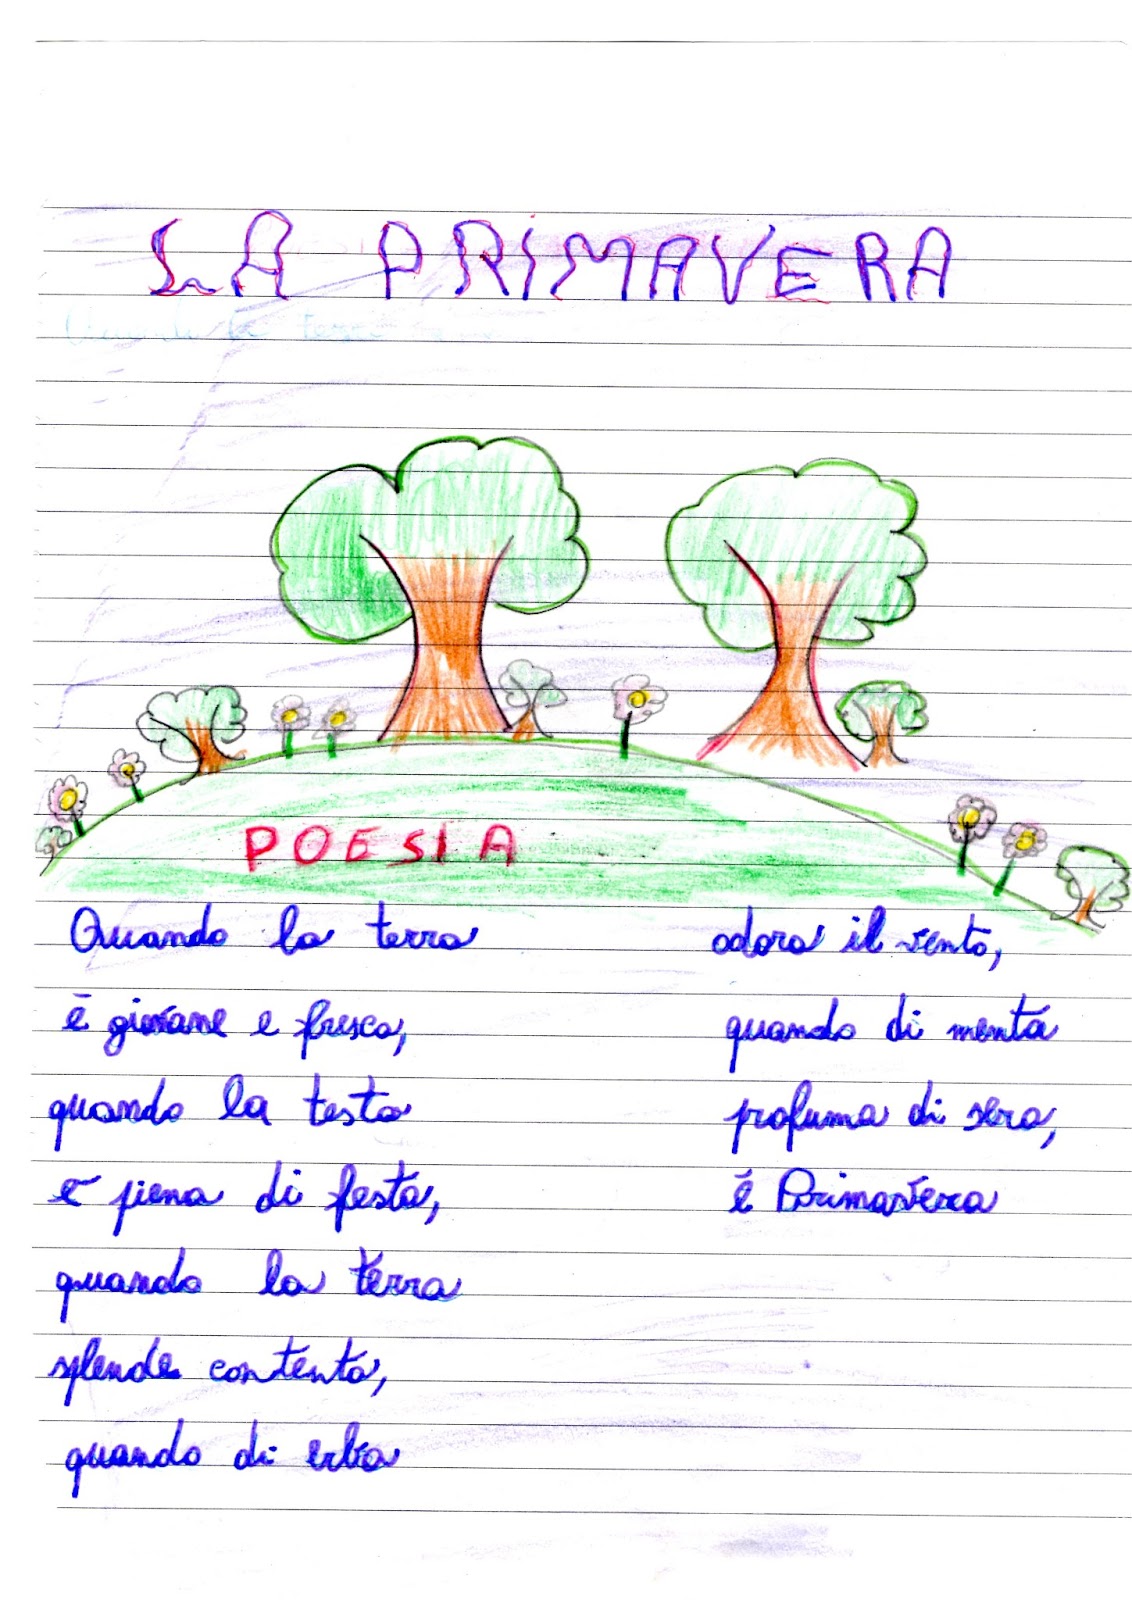 LA PRIMAVERA
POESIA
Quando la terra
è giovane e fresca,
quando la testa
è piena di festa,
quando la terra
splende contenta,
quando di erba
odora il vento,
quando di menta
profuma di sera,
è Primavera